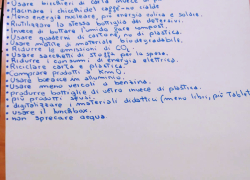 • Usare bicchieri di carta invece di
• Macinare i chicchi del caffè no cialde.
• Meno energia nucleare più energia eolica e solare.
• Riutilizzare la stessa bottiglia dei detersivi.
• Invece di buttare l'umido fare compost.
• Usare quaderni di cartone, no di plastica.
• Usare matite di materiale biodegradabile.
• Ridurre le emissioni di CO2.
• Usare sacchetti di stoffa per la spesa.
• Ridurre i consumi di energia elettrica.
• Riciclare carta e plastica.
• Comprare prodotti a Km 0.
• Usare borracce in alluminio.
• Usare meno veicoli a benzina.
• produrre bottiglie di vetro invece di plastica.
• più prodotti sfusi.
• digitalizzare i materiali didattici (meno libri, più Tablet
• usare il lunchbox.
• non sprecare acqua.